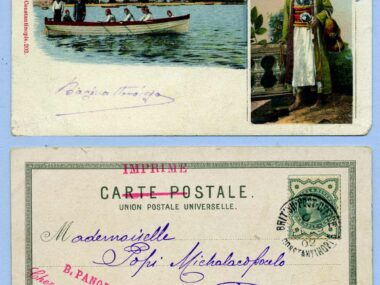 Constantinople, 202.
IMPRIMÉ
CARTE POSTALE.
UNION POSTALE UNIVERSELLE.
BRITISH POST OFFICE
CONSTANTINOPLE
02
Mademoiselle
Popi Michalacopoulo
B. PANO